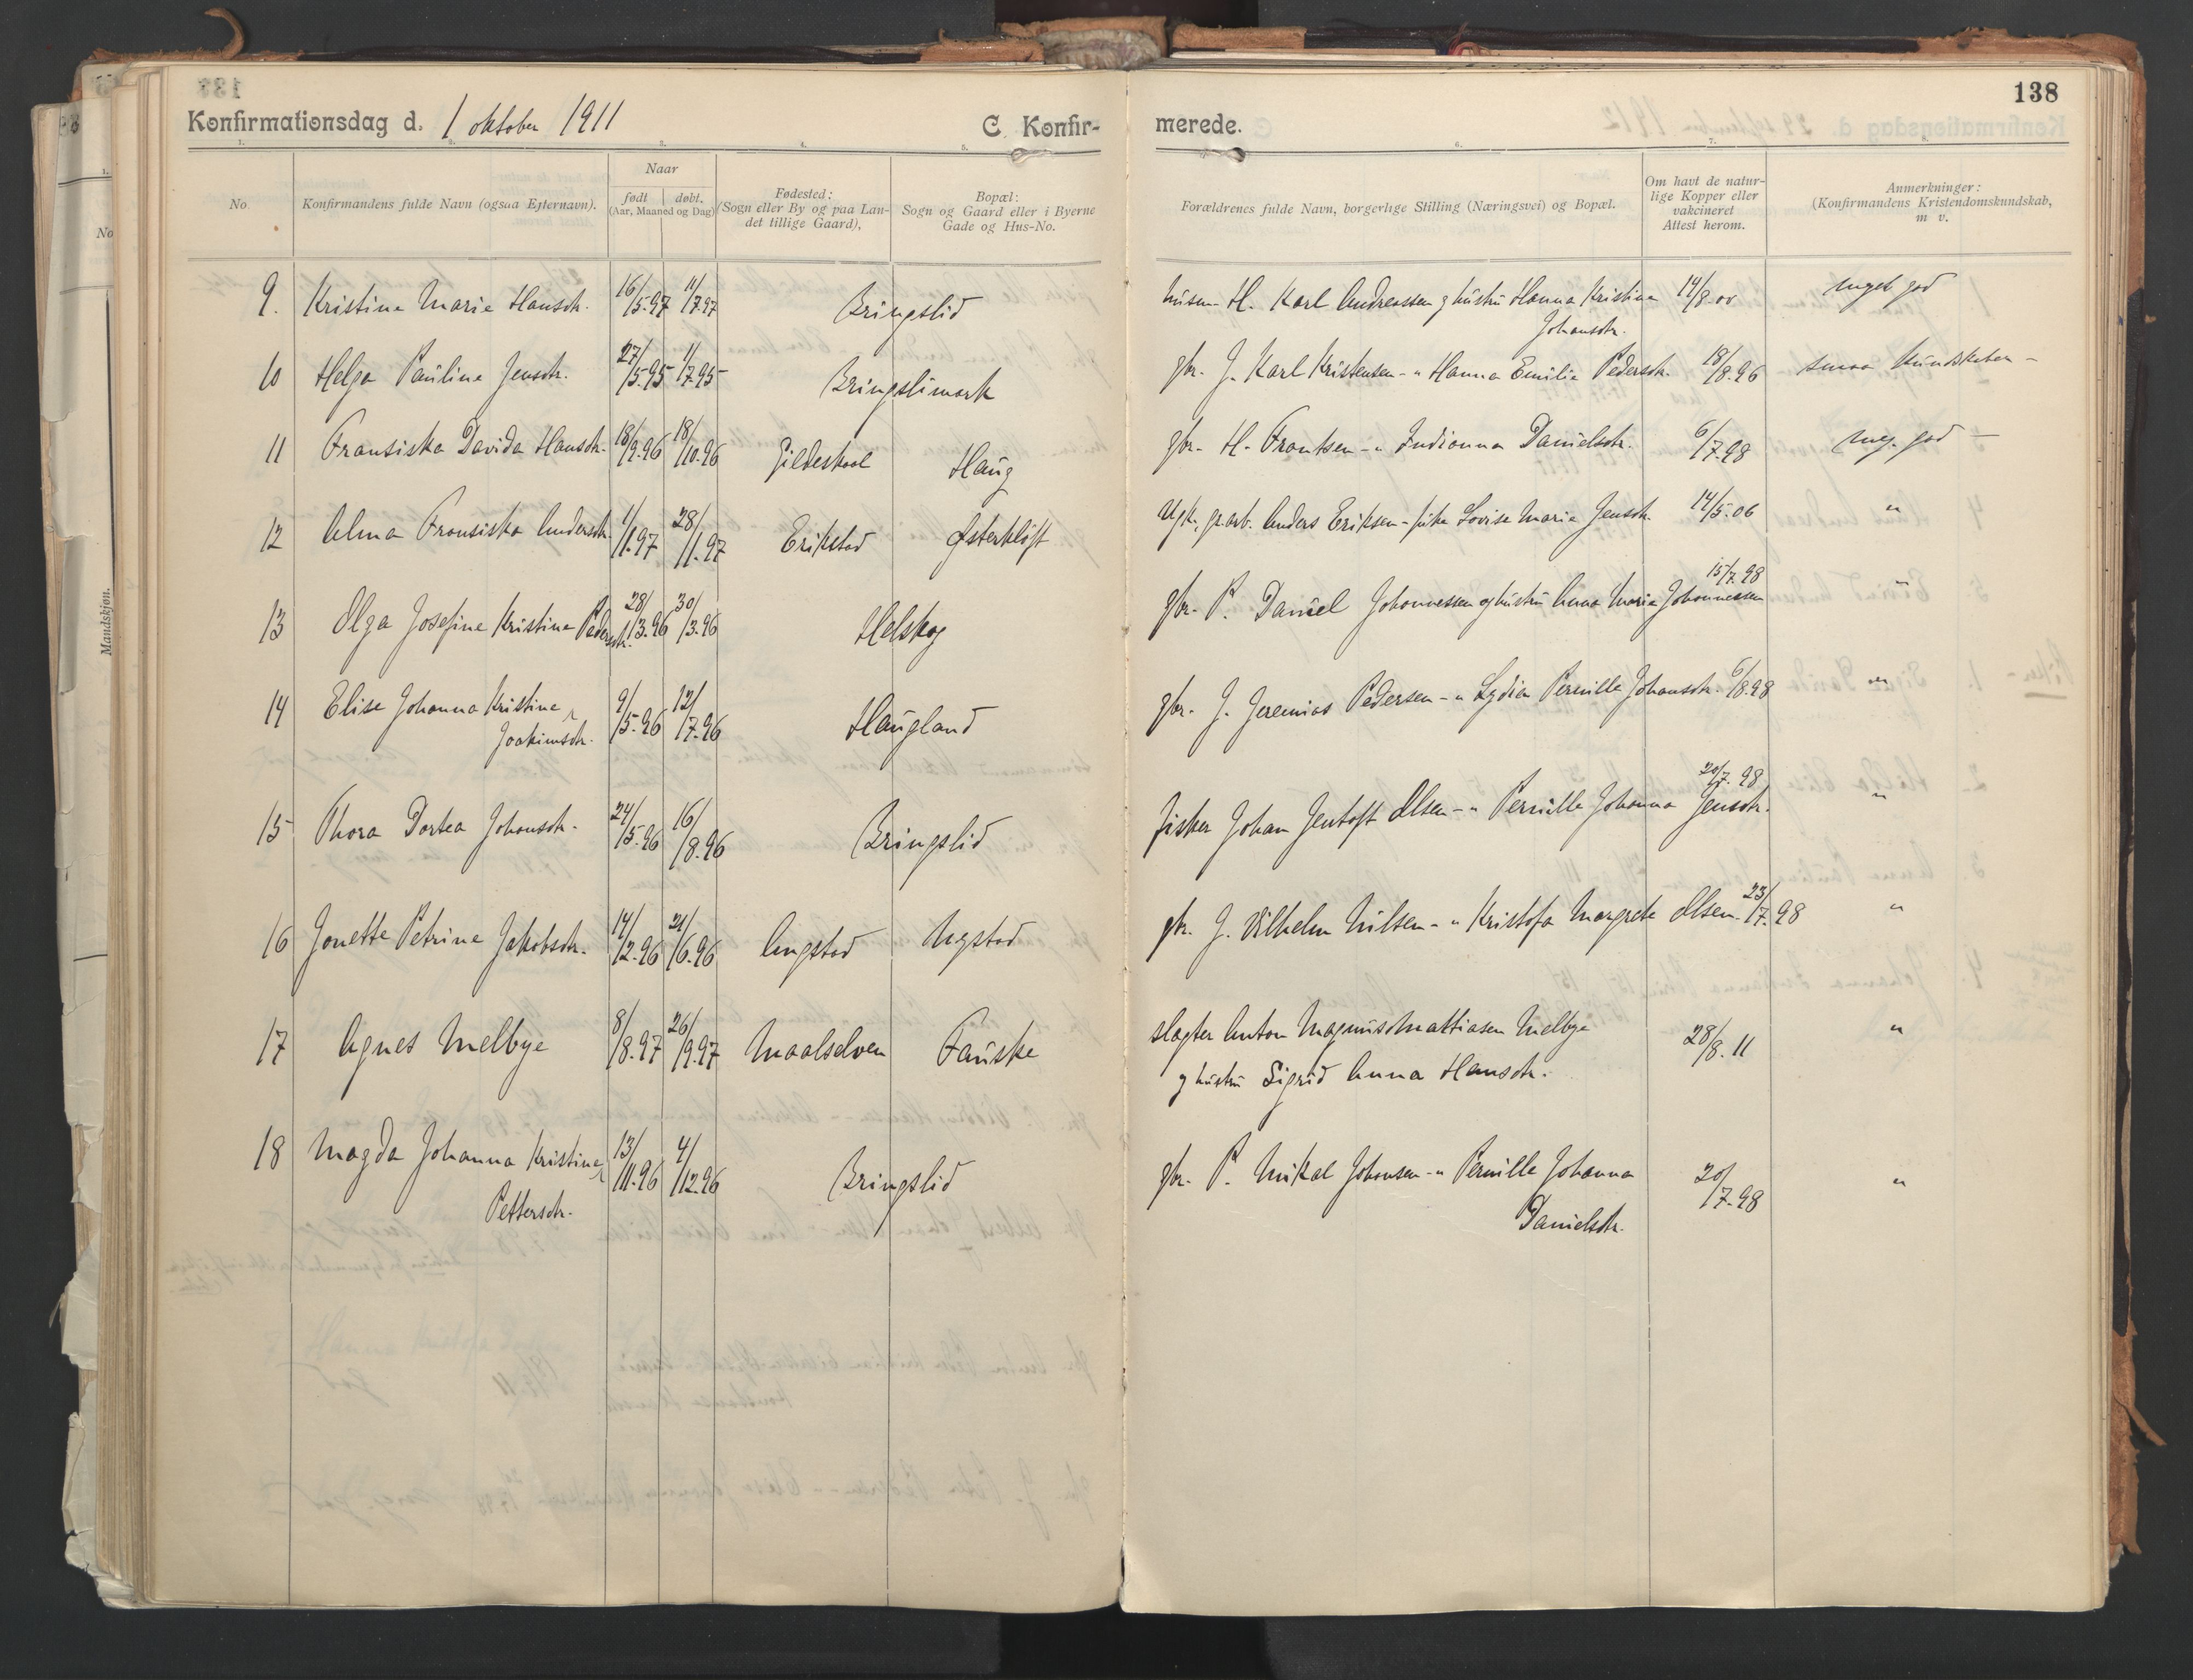 138
Konfirmationsdag d. 1 oktober 1911
C. Konfir-
merede.
No.
Konfirmandens fulde Navn (ogsaa Efternavn).
Naar
født
døbt.
(Aar, Maaned og Dag)
Fødested:
(Sogn eller By og paa Lan-
det tillige Gaard),
Bopæl:
Sogn og Gaard eller i Byerne
Gade og Hus-No.
Forældrenes fulde Navn, borgerlige Stilling (Næringsvei) og Bopæl.
Om havt de natur-
lige Kopper eller
vakcineret
Attest herom.
Anmerkninger:
(Konfirmandens Kristendomskundskab,
m v.
9. Kristine Marie Hansdtr. 16/5.97 11/7.97 Bringslid husm. H. Karl Andreassen og hustru Hanna Kristine 14/8.00 meget god
Johansdtr.
10 Helga Pauline Jensdtr. 27/5.95 1/7.95 Bringslimark gbr. J. Karl Kristensen - " Hanna Emilie Pedersdtr. 18/8.96 smaa kundskaber -
11 Fransiska Davida Hansdtr. 18/9.96 18/10.96 Gildeskaal Haug gbr. H. Frantsen - " Indianna Danielsdtr. 6/7.98 meg. god -
12 Alma Fransiska Andersdtr. 1/1.97 28/11.97 Erikstad Østerkløft Ugk. gr.arb. Anders Eriksen - pike Lovise Marie Jensdtr. 14/5.06 "
13 Olga Josefine Kristine Pedersdtr. 28/3.96 30/3.96 Helskog gbr. P. Daniel Johannessen og hustru Anna Marie Johannessen 15/7.98 "
14 Elise Johanna Kristine 9/5.96 12/7.96 Haugland gbr. J. Jeremias Pedersen - " Lydia Pernille Johansdtr. 6/8.98 "
Joakimsdtr.
15 Thora Dortea Johansdtr. 24/5.96 16/8.96 Bringslid fisker Johan Jentoft Olsen - " Pernille Johanna Jensdtr. 20/7.98 "
16 Jonette Petrine Jakobsdtr. 14/2.96 21/6.96 Angstad Nystad gbr. J. Vilhelm Nilsen - " Kristofa Margrete Olsen 23/7.98 "
17 Agnes Melbye 8/8.97 26/9.97 Maalselven Fauske slagter Anton Magnus Mattiasen Melbye 28/8.11 "
og hustru Sigrid Anna Hansdtr.
18 Magda Johanna Kristine 13/11.96 4/12.96 Bringslid gbr. P. Mikal Johansen - " Pernille Johanna 20/7.98 "
Pettersdtr. Danielsdtr.
No
Mandskjøn.